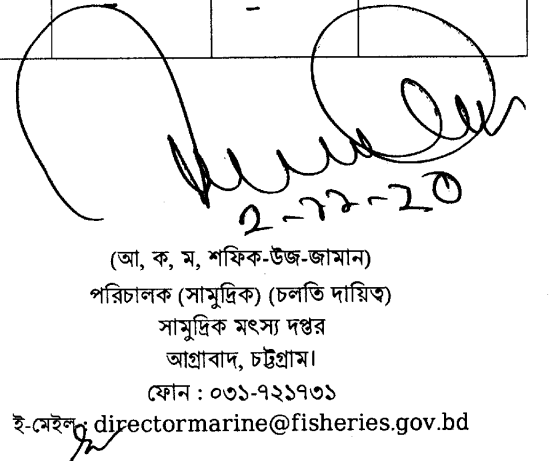 (আ, ক, ম, শফিক-উজ-জামান)
পরিচালক (সামুদ্রিক) (চলতি দায়িত্ব)
সামুদ্রিক মৎস্য দপ্তর
আগ্রাবাদ, চট্টগ্রাম।
ফোন : ০৩১-৭২১৭৩১
ই-মেইল : directormarine@fisheries.gov.bd